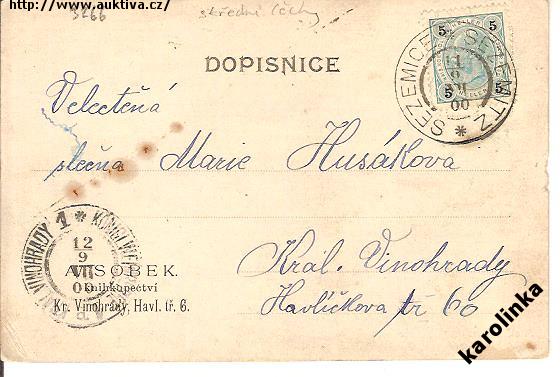 http://www.auktiva.cz/
3266 střední Čechy
DOPISNICE
5 HELLER 5
5 HELLER 5
SEZEMICE SEZEMITZ
11
9
00
Velectěná
slečna Marie Husákova
Král. Vinohrady
Havlíčkova tř 60
VINOHRADY 1
12
9
VII
00
A. SOBEK.
knihkupectví
Kr. Vinohrady, Havl. tř. 6.
karolinka